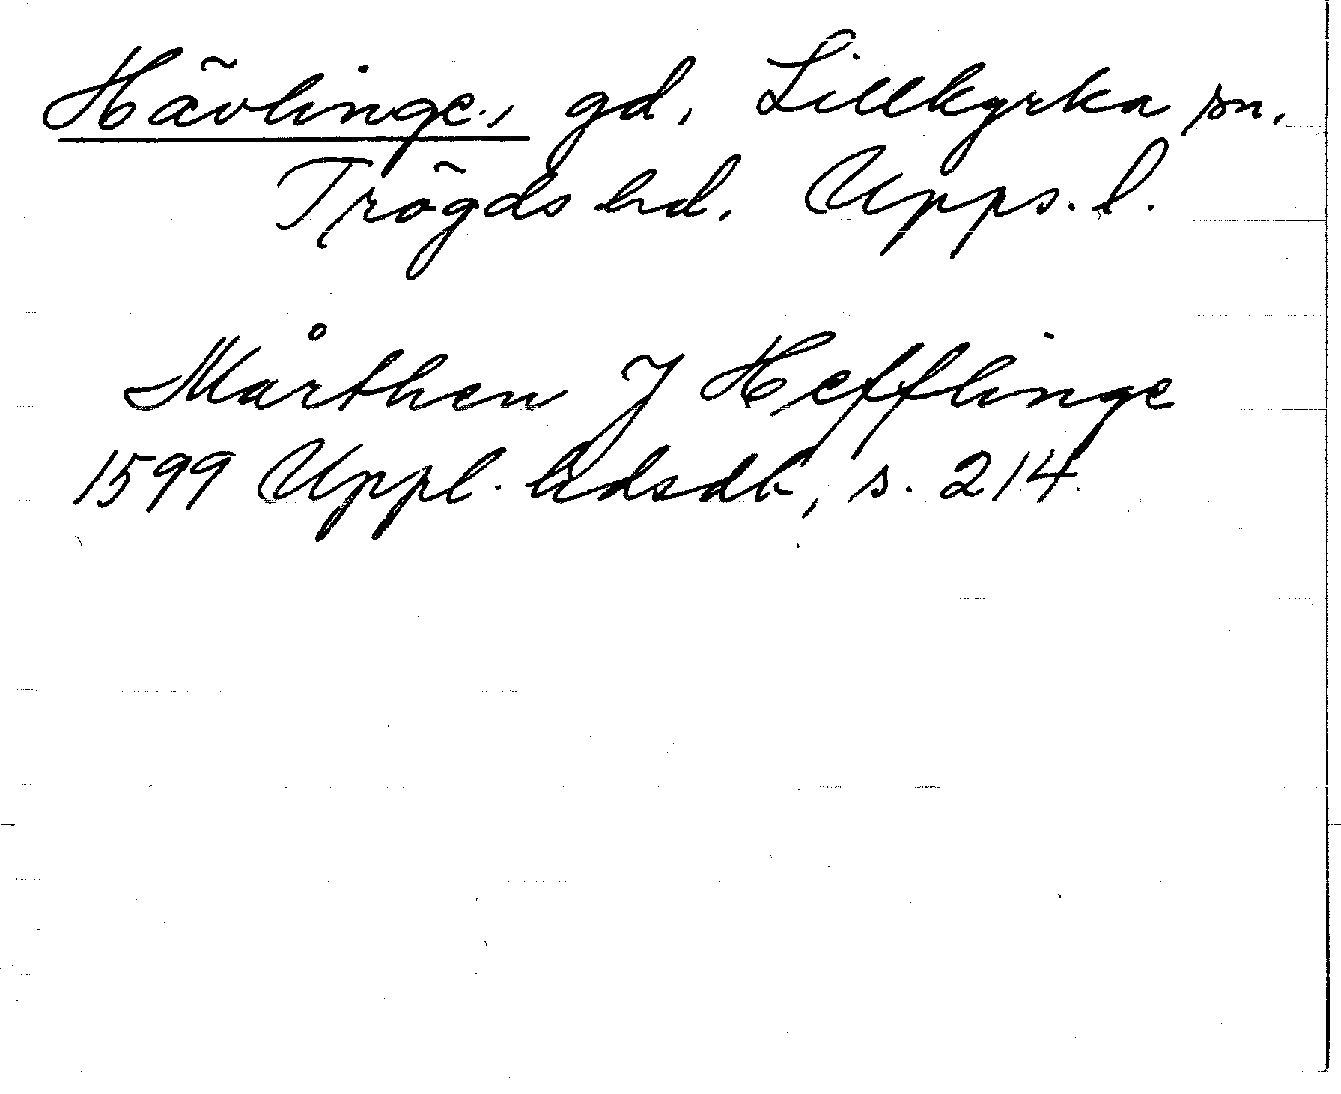 Hävlinge, gd, Lillkyrka sn.
Trögds hd. Upps. l.
Mårthen J Hefflinge
1599 Uppl. hdsdb, s. 214